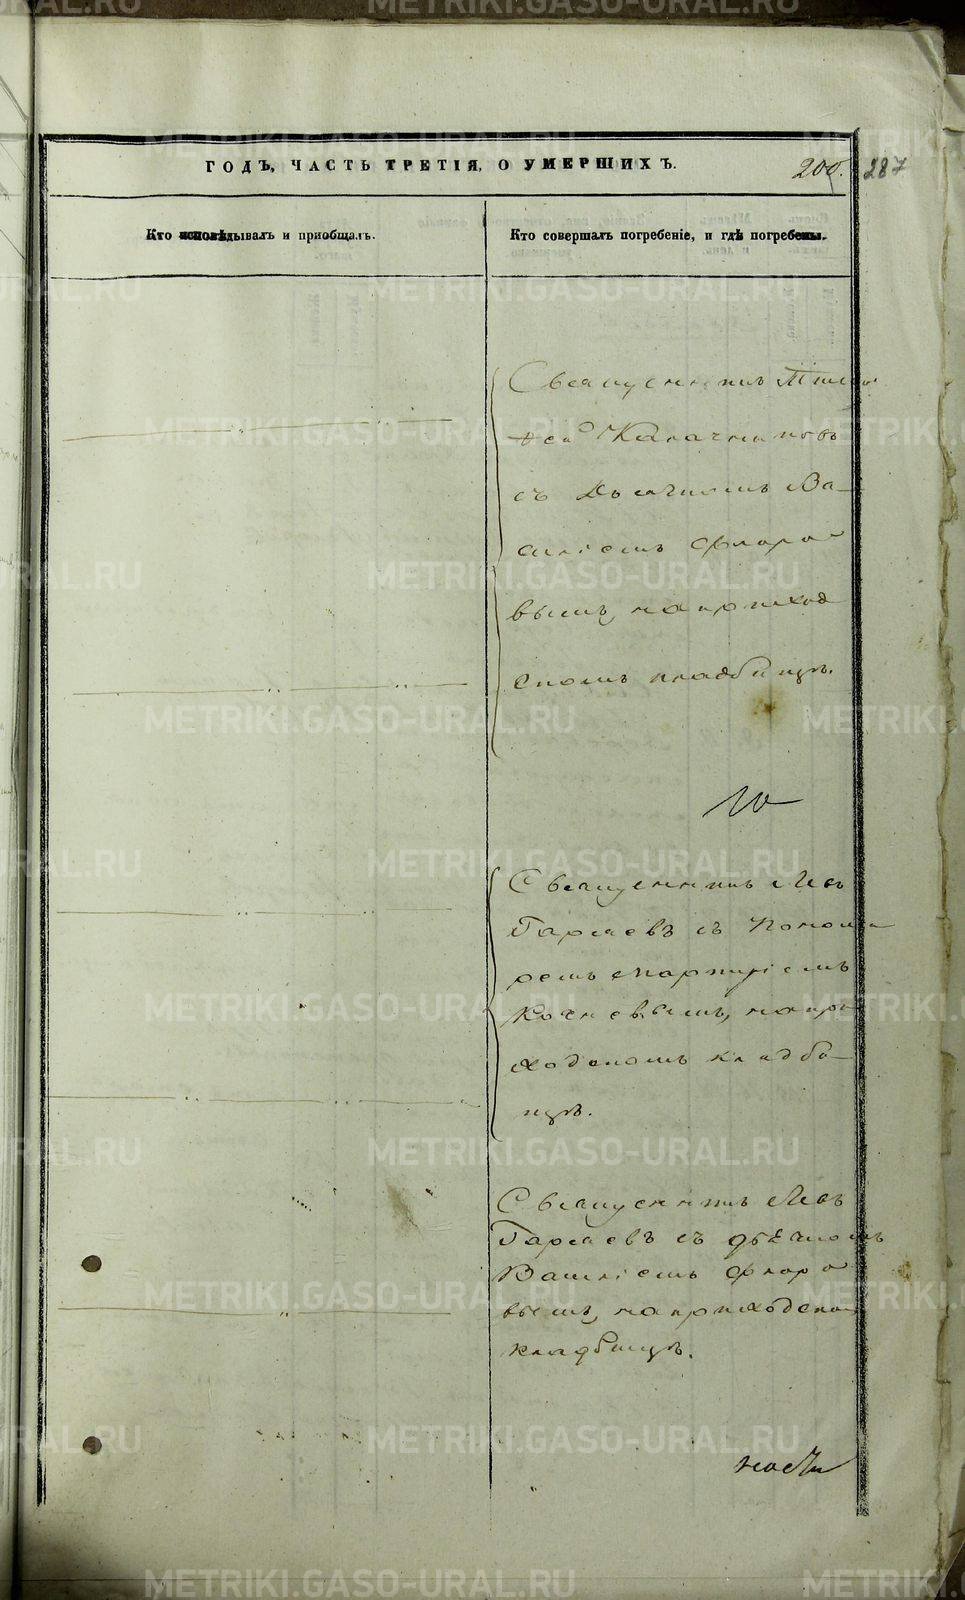 ГОДЪ, ЧАСТЬ ТРЕТІЯ, О УМЕРШИХЪ. 200. 287
Кто исповѣдывалъ и пріобщалъ.
Кто совершалъ погребеніе, и гдѣ погребены.
Священникъ
Калачниковъ
съ Дьячкомъ Ва-
силіемъ Флоро
вымъ, на приход
скомъ кладбищѣ.
Священникъ Левъ
Гаряевъ съ Понома
ремъ
на при
ходскомъ кладби-
щѣ.
Священникъ Левъ
Гаряевъ съ дьячкомъ
Василіемъ Флоро
вымъ, на приходском
кладбищѣ.
METRIKI.GASO-URAL.RU